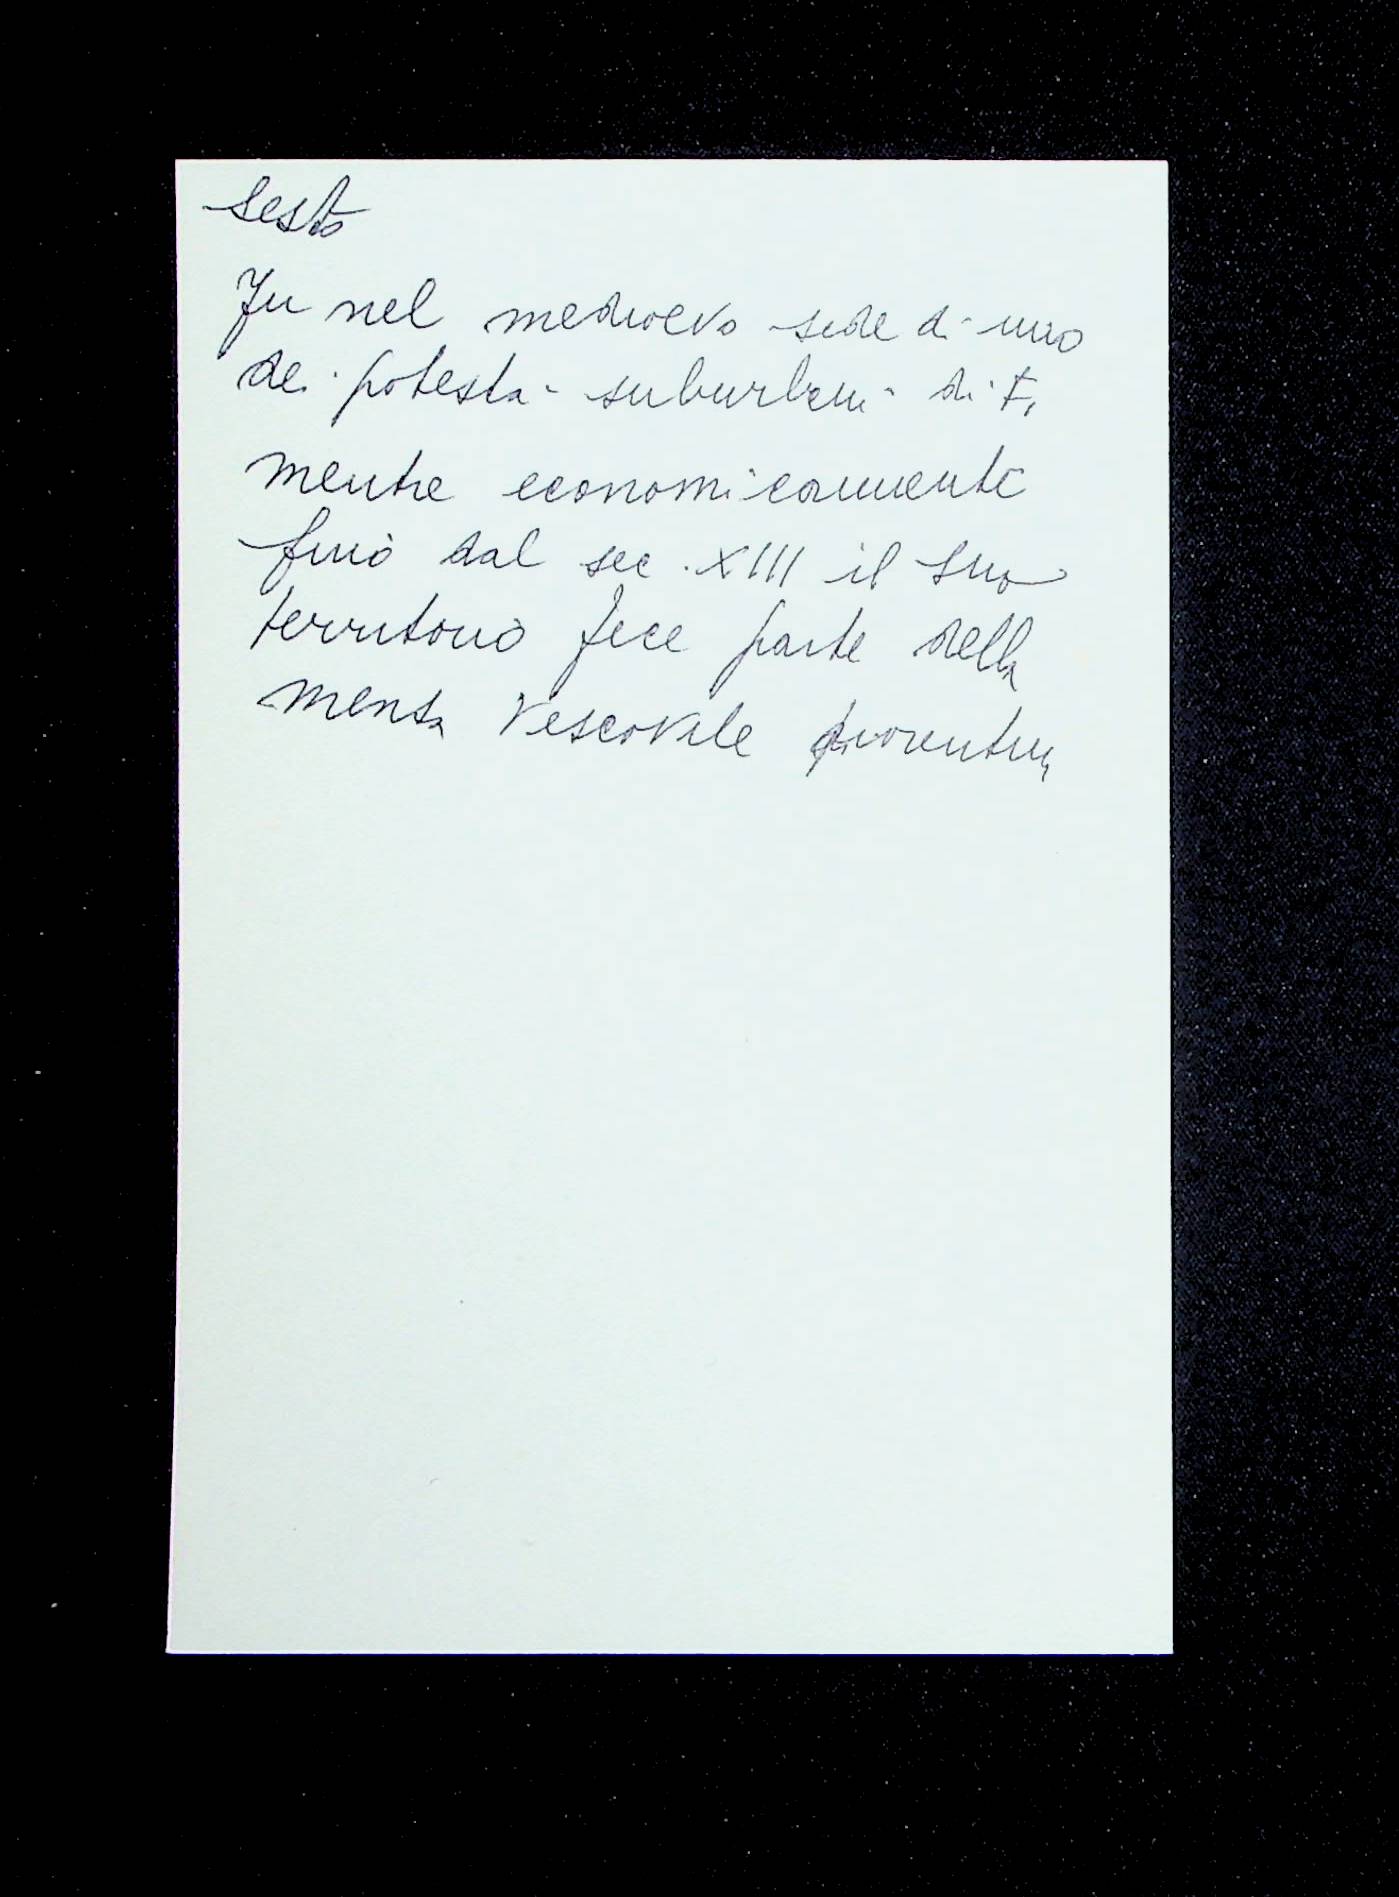 Sesto
Fu nel medioevo sede di uno
dei potestà suburbani di F.
mentre economicamente
fino dal sec. XIII il suo
territorio fece parte della
mensa vescovile fiorentina